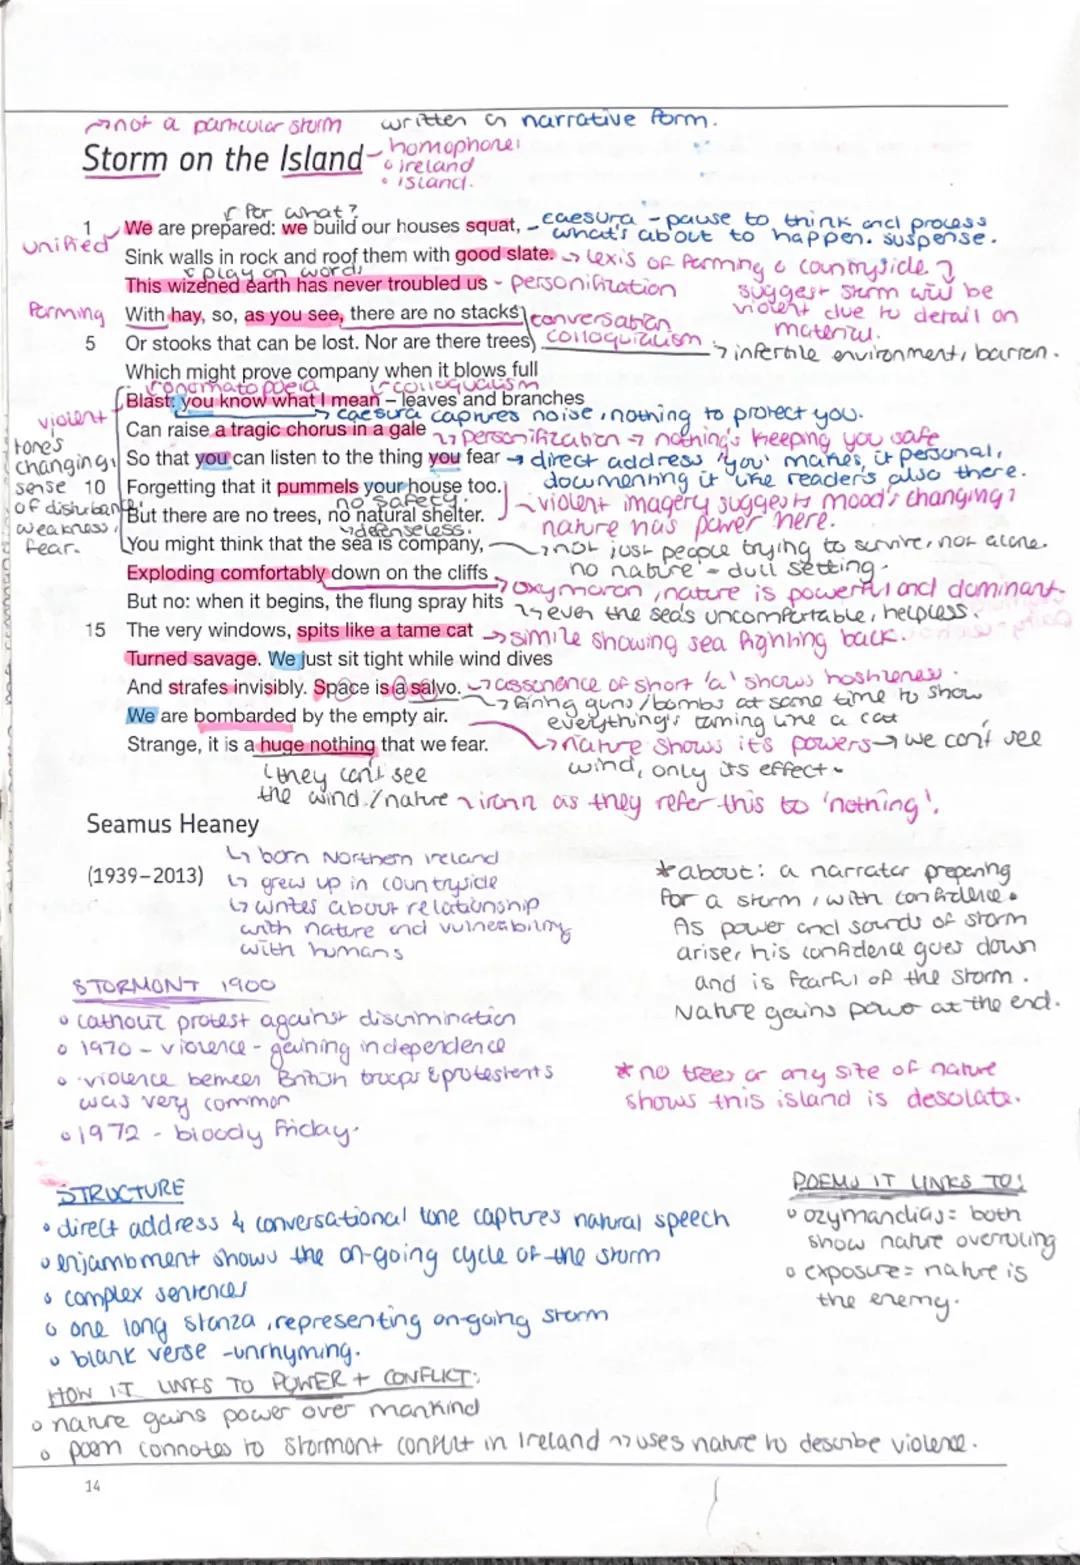 →not a particular storm written in narrative form.
Storm on the Island - homophone:
• ireland
• island.
↱ for what?
1 We are prepared: we build our houses squat, - caesura - pause to think and process
unified what's about to happen. suspense.
Sink walls in rock and roof them with good slate. → lexis of farming & countryside
↱ play on words suggest storm will be
This wizened earth has never troubled us - personification violent due to detail on
farming With hay, so, as you see, there are no stacks conversation material.
5 Or stooks that can be lost. Nor are there trees colloquialism → infertile environment, barren.
Which might prove company when it blows full
↱ onomatopoeia ↱ colloquialism
Blast: you know what I mean – leaves and branches
violent → caesura captures noise, nothing to protect you.
Can raise a tragic chorus in a gale → personification → nothing's keeping you safe
tone's changing, sense of disturbance, weakness, fear.
So that you can listen to the thing you fear → direct address 'you' makes it personal,
documenting it like readers also there.
10 Forgetting that it pummels your house too.
no safety. → violent imagery suggests mood's changing,
But there are no trees, no natural shelter. nature has power here.
→ defenseless.
You might think that the sea is company, → not just people trying to survive, not alone.
no nature - dull setting.
Exploding comfortably down on the cliffs → oxymoron, nature is powerful and dominant
But no: when it begins, the flung spray hits → even the sea's uncomfortable, helpless.
15 The very windows, spits like a tame cat → simile showing sea fighting back.
Turned savage. We just sit tight while wind dives
And strafes invisibly. Space is a salvo. → assonance of short 'a' shows harshness.
→ firing guns/bombs at same time to show
We are bombarded by the empty air. everything's taming like a cat
Strange, it is a huge nothing that we fear. → nature shows its powers → we can't see
wind, only its effect.
they can't see
the wind/nature → irony as they refer this to 'nothing'.
Seamus Heaney
(1939–2013)
↳ born Northern ireland
↳ grew up in countryside
↳ writes about relationship
with nature and vulnerability
with humans
*about: a narrator preparing
for a storm, with confidence.
As power and sounds of storm
arise, his confidence goes down
and is fearful of the storm.
Nature gains power at the end.
STORMONT 1900
• catholic protest against discrimination
• 1970 - violence - gaining independence
• violence between British troops & protestents
was very common
• 1972 - bloody friday.
* no trees or any site of nature
shows this island is desolate.
STRUCTURE
• direct address & conversational tone captures natural speech
• enjambment shows the on-going cycle of the storm
• complex sentences
• one long stanza, representing on-going storm
• blank verse - unrhyming.
POEMS IT LINKS TO:
• ozymandias = both
show nature overruling
• exposure = nature is
the enemy.
HOW IT LINKS TO POWER + CONFLICT:
• nature gains power over mankind
• poem connotes to Stormont conflict in Ireland → uses nature to describe violence.
14